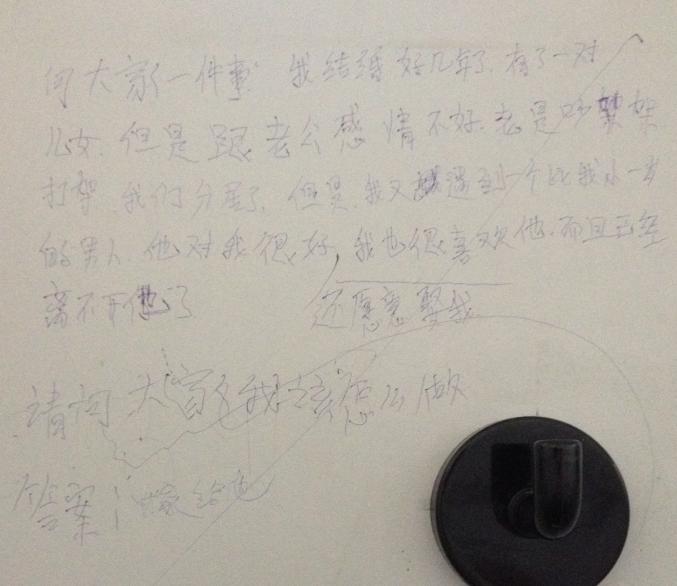 问大家一件事 我结婚好几年了,有了一对
儿女.但是跟老公感情不好.老是吵架
打架.我们分居了,但是.我又遇到一个比我小一岁
的男人.他对我很好,我也很喜欢他.而且已经
离不开他了
还愿意娶我
请问大家我该怎么做
答案:嫁给他